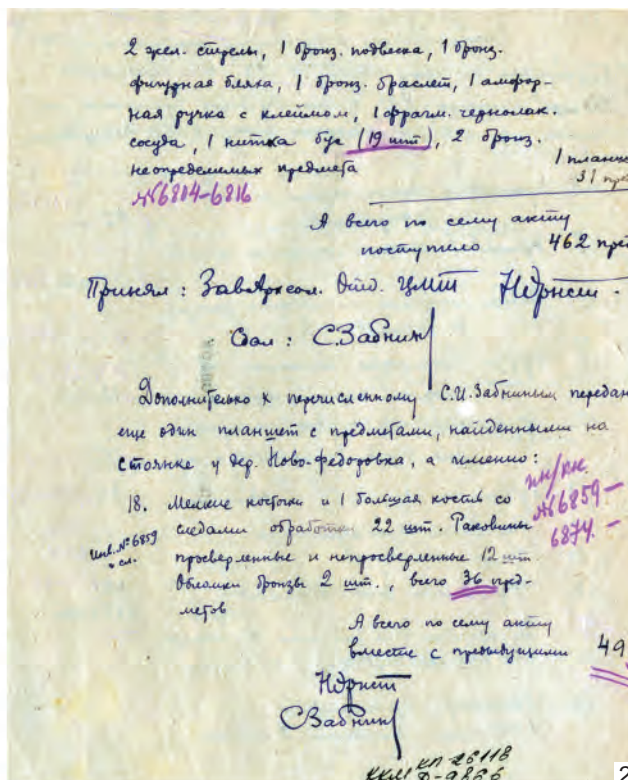 2 жел. стрелы, 1 бронз. подвеска, 1 бронз.
фигурная бляха, 1 бронз. браслет, 1 амфор-
ная ручка с клеймом, 1 фрагм. чернолак.
сосуда, 1 нитка бус (19 шт), 2 бронз.
неопределимых предмета
1 планш
31 пред
№6804-6816
А всего по сему акту
поступило 462 пред
Принял: ЗавАрхеол. Отд. ЦМТ НЭрнст
Сдал: С.Забнин
Дополнительно к перечисленному С.И.Забниным передан
еще один планшет с предметами, найденными на
стоянке у дер. Ново-Федоровка, а именно:
18. Мелкие косточки и 1 большая кость со
следами обработки 22 шт. Раковины
просверленные и непросверленные 12 шт.
Обломки бронзы 2 шт., всего 36 пред-
метов
№6859-
6874.
Инв. №6859
и сл.
А всего по сему акту
вместе с предыдущими 49
НЭрнст
СЗабнин
ККМ КП-26118
Д-9866
2